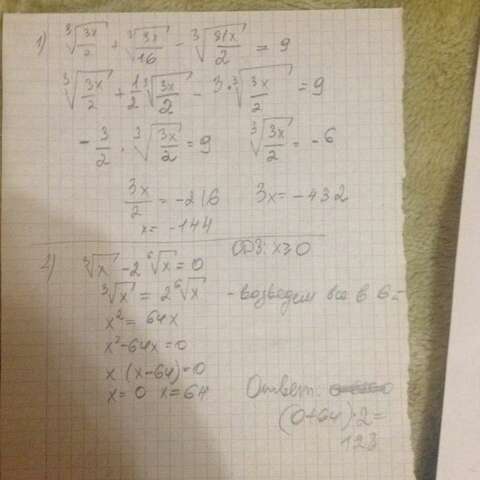 1) ∛(3x/2) + ∛(3x/16) - ∛(81x/2) = 9
∛(3x/2) + 1/2 ∛(3x/2) - 3·∛(3x/2) = 9
-3/2 · ∛(3x/2) = 9 ∛(3x/2) = -6
3x/2 = -216 3x = -432
x = -144
2) ∛x - 2 ⁶√x = 0 ОДЗ: x≥0
∛x = 2 ⁶√x - возведем все в 6-
x² = 64x
x² - 64x = 0
x (x-64) = 0
x = 0 x = 64 Ответ:
(0+64)·2 =
128